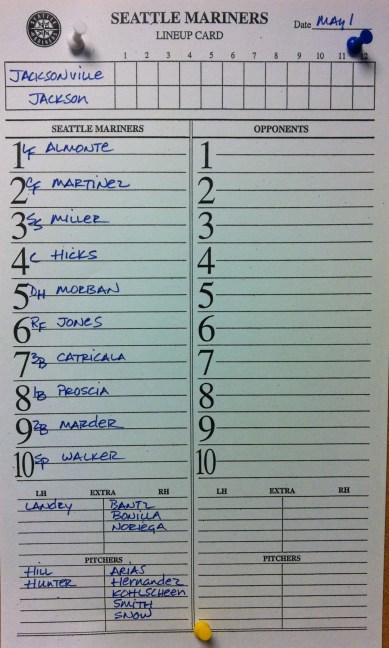 SEATTLE MARINERS
LINEUP CARD
Date MAY 1
1 2 3 4 5 6 7 8 9 10 11 12
JACKSONVILLE
JACKSON
SEATTLE MARINERS OPPONENTS
1 LF ALMONTE 1
2 CF MARTINEZ 2
3 SS MILLER 3
4 C HICKS 4
5 DH MORBAN 5
6 RF JONES 6
7 3B CATRICALA 7
8 1B PROSCIA 8
9 2B MARDER 9
10 SP WALKER 10
LH EXTRA RH LH EXTRA RH
LANDRY BANTZ
BONILLA
NORIEGA
PITCHERS PITCHERS
HILL ARIAS
HUNTER HernAndez
KOHLSCHEEN
SMITH
SNOW